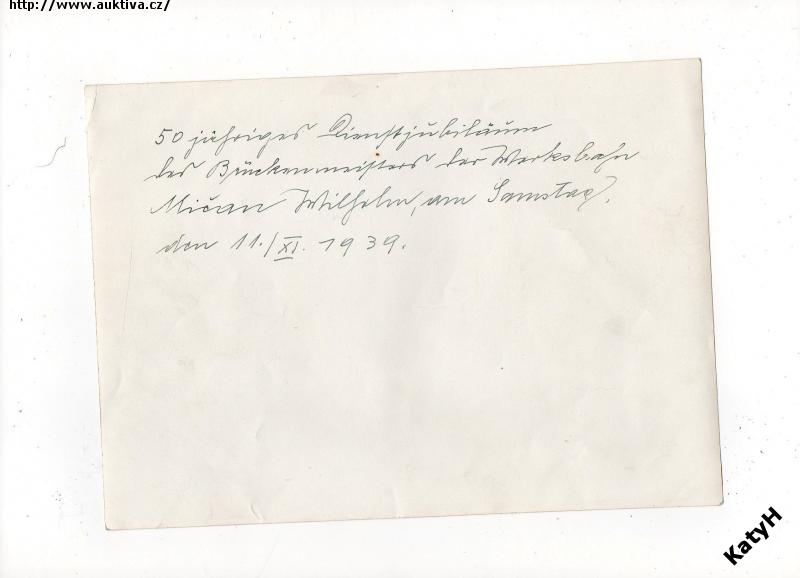 http://www.auktiva.cz/
50 jähriges Dienstjubiläum
des Brückenmeisters der Werksbahn
Mičan Wilhelm, am Samstag,
den 11./XI. 1939.
KatyH